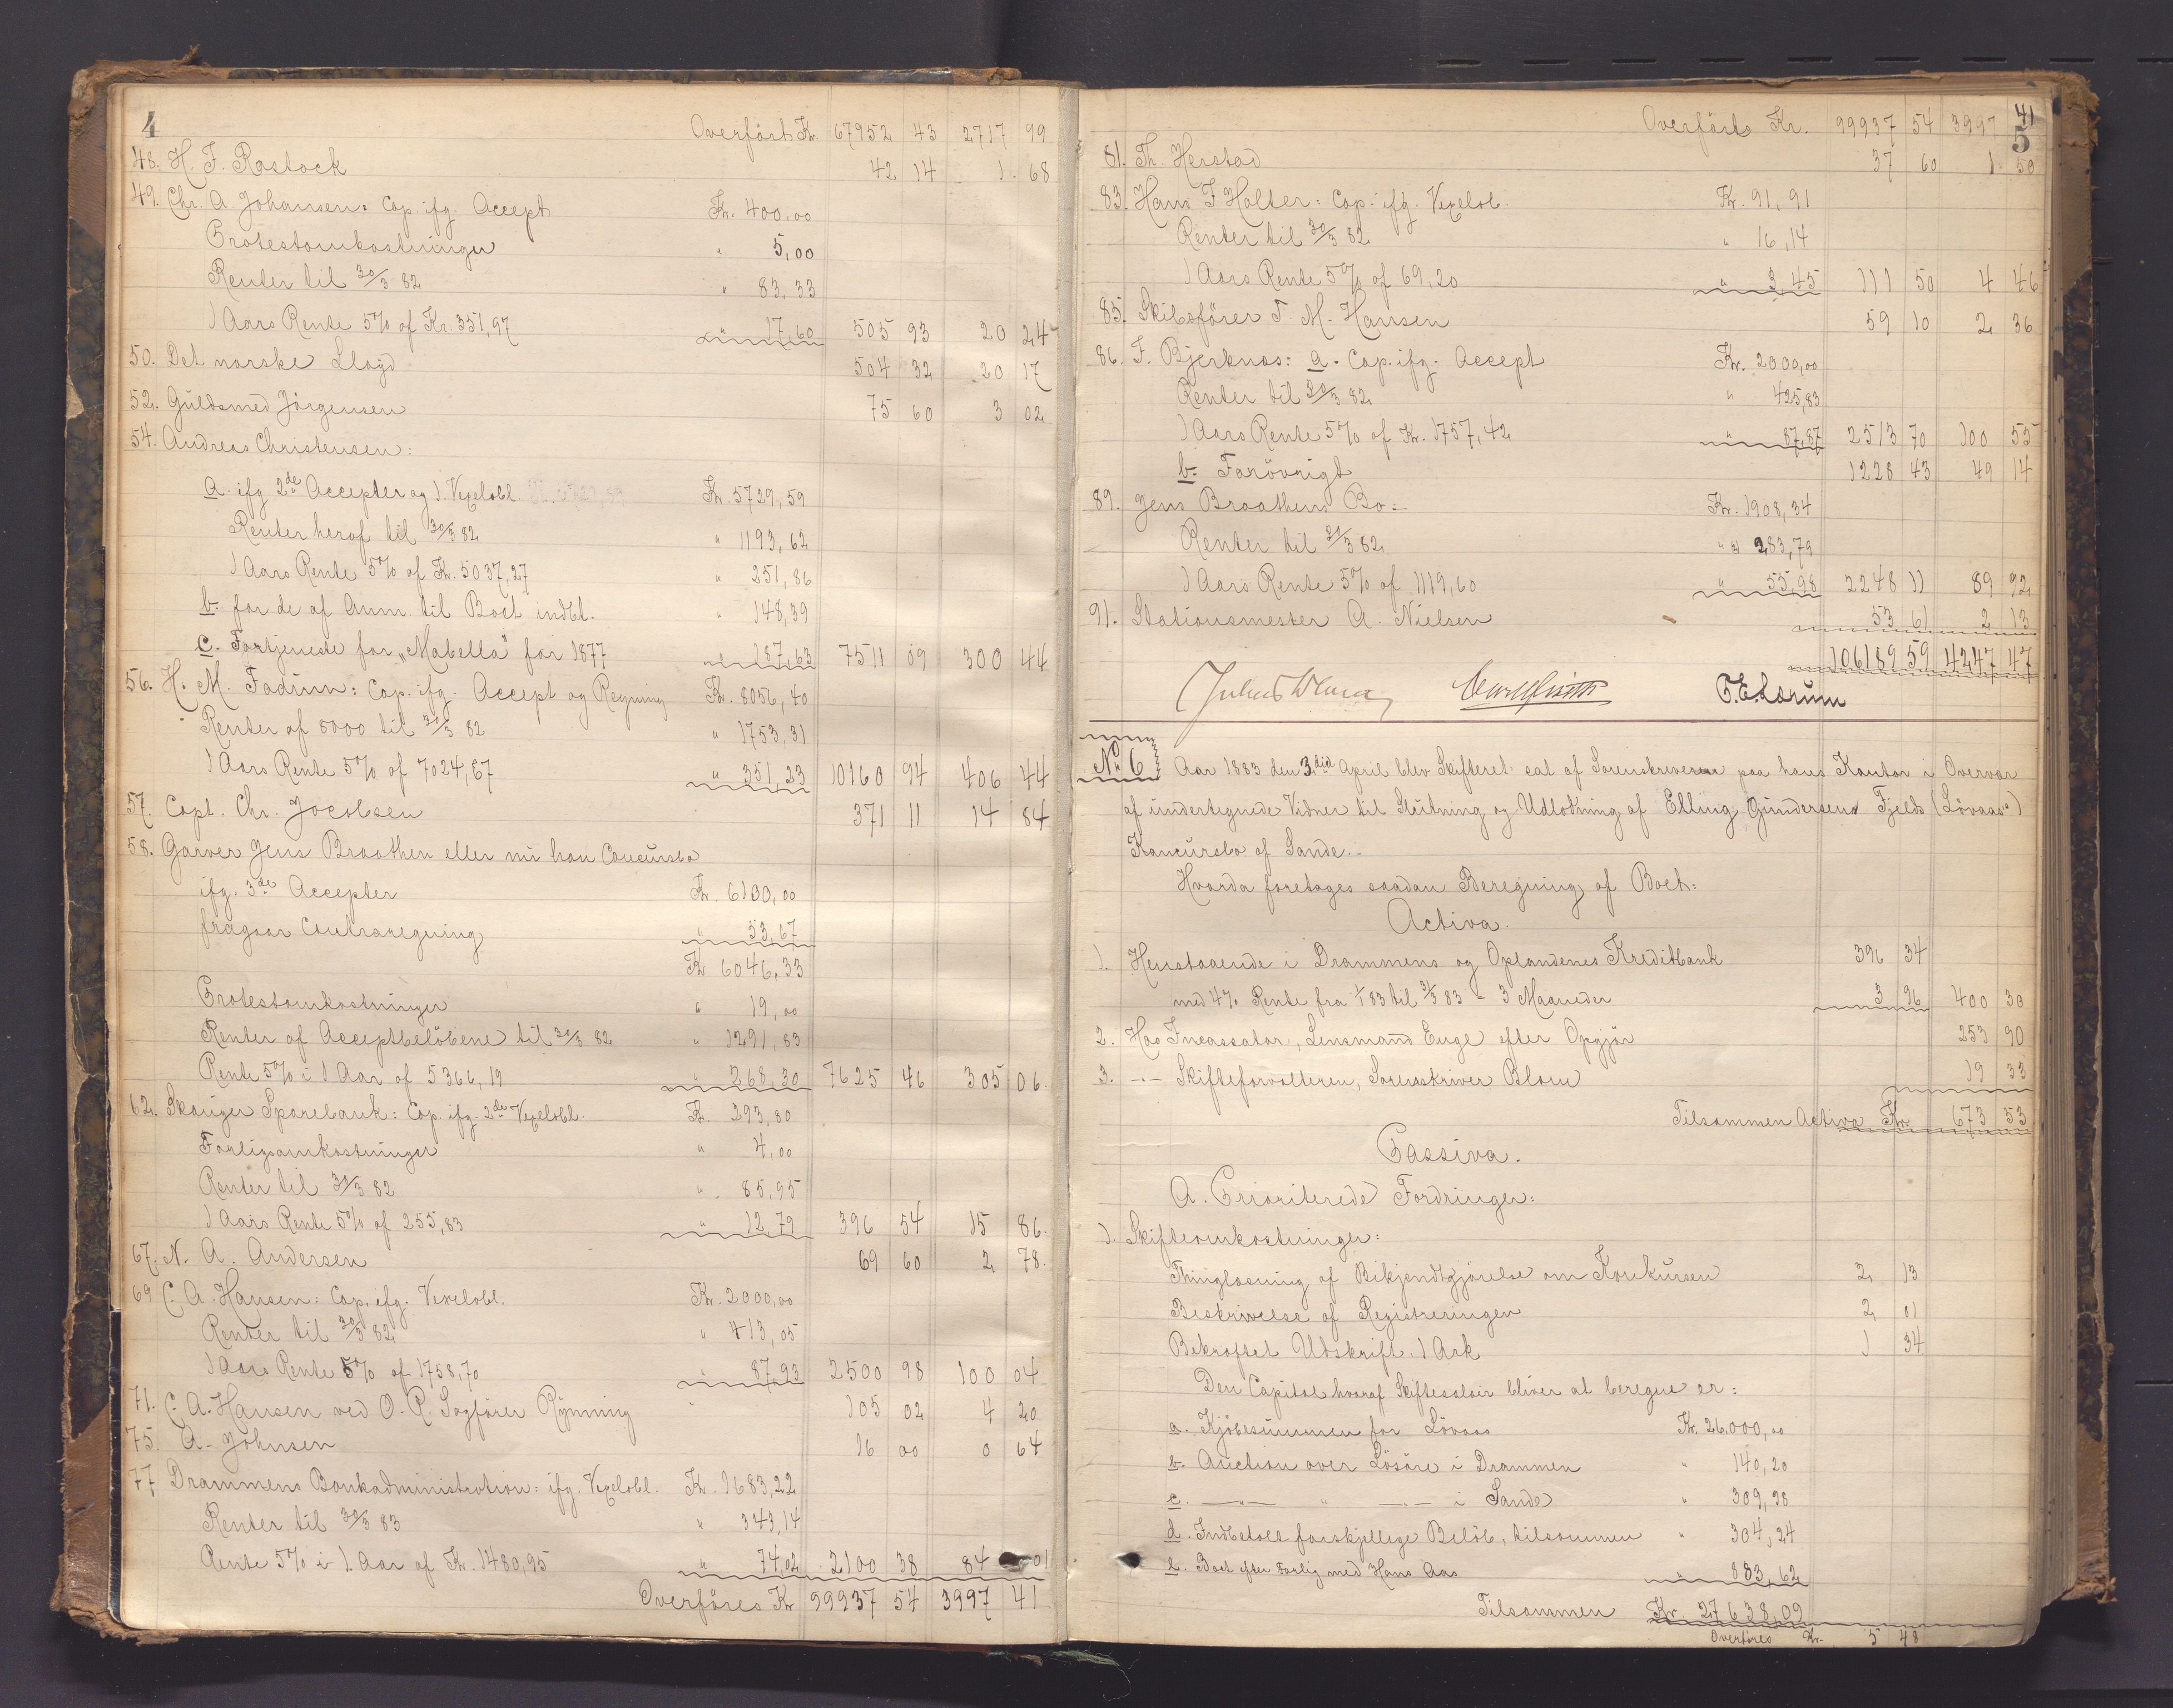 4
Overført Kr. 67952 43 2717 99
48. H. F. Rostock 42 14 1 68
49. Chr. A. Johansen: Cap. ifg. Accept Kr. 400,00
Protestomkostninger " 5,00
Renter til 30/3 82 " 83,33
1 Aars Rente 5% af Kr. 351,97 " 17,60 505 93 20 24
50. Det norske Lloyd 504 32 20 17
52. Guldsmed Jørgensen 75 60 3 02
54. Andreas Christensen:
a. ifg 2de Accepter og 1. Vexelobl. Kr. 5729,59
Renter heraf til 30/3 82 " 1193,62
1 Aars Rente 5% af Kr. 5037,27 " 251,86
b. for de af Anm. til Boet indbt. " 148,39
c. Fortjeneste for "Mabella" for 1877 " 187,63 7511 09 300 44
56. H. M. Fadum: Cap. ifg. Accept og Regning Kr. 8056,40
Renter af 8000 til 30/3 82 " 1753,31
1 Aars Rente 5% af 7024,67 " 351,23 10160 94 406 44
57. Capt. Chr. Jacobsen 371 11 14 84
58. Garver Jens Braathen eller nu han Concursbo
ifg. 3de Accepter Kr. 6100,00
fragaar Contraregning " 53,67
Kr. 6046,33
Protestomkostninger " 19,00
Renter af Acceptbeløbene til 30/3 82 " 1291,83
Rente 5% i 1 Aar af 5366,19 " 268,30 7625 46 305 06
62. Skouger Sparebank: Cap. ifg. 2de Vexelobl. Kr. 293,80
Forligsomkostninger " 4,00
Renter til 30/3 82 " 85,95
1 Aars Rente 5% af 255,83 " 12,79 396 54 15 86
67. N. A. Andersen 69 60 2 78
69 C. A. Hansen: Cap. ifg. Vexelobl. Kr. 2000,00
Renter til 30/3 82 " 413,05
1 Aars Rente 5% af 1758,70 " 87,93 2500 98 100 04
71. C. A. Hansen ved O. R. Sagfører Rynning 105 02 4 20
75. A. Johnsen 16 00 0 64
77 Drammens Bankadministration: ifg. Vexelobl. Kr. 1683,22
Renter til 30/3 83 " 343,14
Rente 5% i 1. Aar af Kr. 1480,95 " 74,02 2100 38 84 01
Overføres Kr 99937 54 3997 41
5
Overført Kr. 99937 54 3997 41
81. Th. Herstad 37 60 1 50
83. Hans F Holter: Cap. ifg. Vexelob. Kr. 91,91
Renter til 30/3 82 " 16,14
1 Aars Rente 5% af 69,20 " 3,45 111 50 4 46
85. Skibsfører F. M. Hansen 59 10 2 36
86. F. Bjerknæs: a. Cap. ifg. Accept Kr. 2000,00
Renter til 30/3 82 " 425,83
1 Aars Rente 5% af Kr. 1757,42 " 87,87 2513 70 100 55
b. Forøvrigt 1228 43 49 14
89. Jens Braathens Bo: Kr. 1908,34
Renter til 31/3 82 " 283,79
1 Aars Rente 5% af 1119,60 " 55,98 2248 11 89 92
91. Stationsmester A. Nielsen 53 61 2 13
106189 59 4247 47
T. E. Lørum
No 6 Aar 1883 den 3die April blev Skifteret sat af Sorenskriveren paa hans Kontor i Overvær
af undertegnede Vidner til Slutning og Udlodning af Elling Gundersens Fjelds (Løvaas)
Koncursbo af Sande.
Hvorda foretoges saadan Beregning af Boet:
Activa.
1. Henstaaende i Drammens og Oplandenes Kreditbank 396 34
med 4% Rente fra 1/1 83 til 31/3 83 - 3 Maaneder 3 96 400 30
2. Hos Incassator, Lensmand Enge efter Opgjør 253 90
3. -"- Skifteforvalteren, Sorenskriver Blom 19 33
Tilsammen Activa Kr. 673 53
Passiva.
A. Prioriterede Fordringer:
1. Skifteomkostninger:
Thinglæsning af Bekjendtgjørelse om Konkursen 2 13
Beskrivelse af Registreringen 2 01
Bekræftet Udskrift 1 Ark 1 34
Den Capital hvoraf Skiftesalair bliver at beregne er:
a. Kjøbesummen for Løvaas Kr. 26.000,00
b. Auction over Løsøre i Drammen " 140,20
c. -"- " -"- i Sande " 309,98
d. Indbetalt forskjellige Beløb, tilsammen " 304,24
e. Boet efter Forlig med Hans Aas " 883,62
Tilsammen Kr. 27638,09
Overføres Kr. 5 48